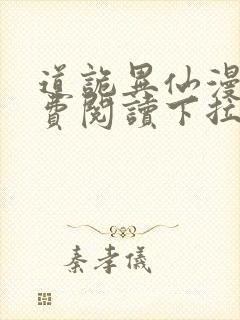 道詭異仙漫
費閱讀下拉
秦孝儀